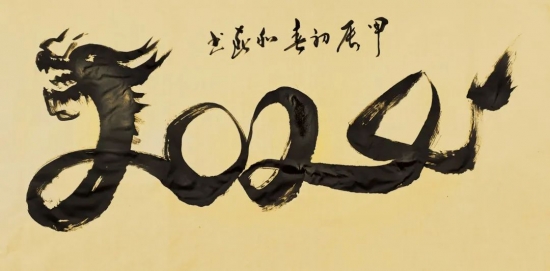 甲辰初春和书
2024